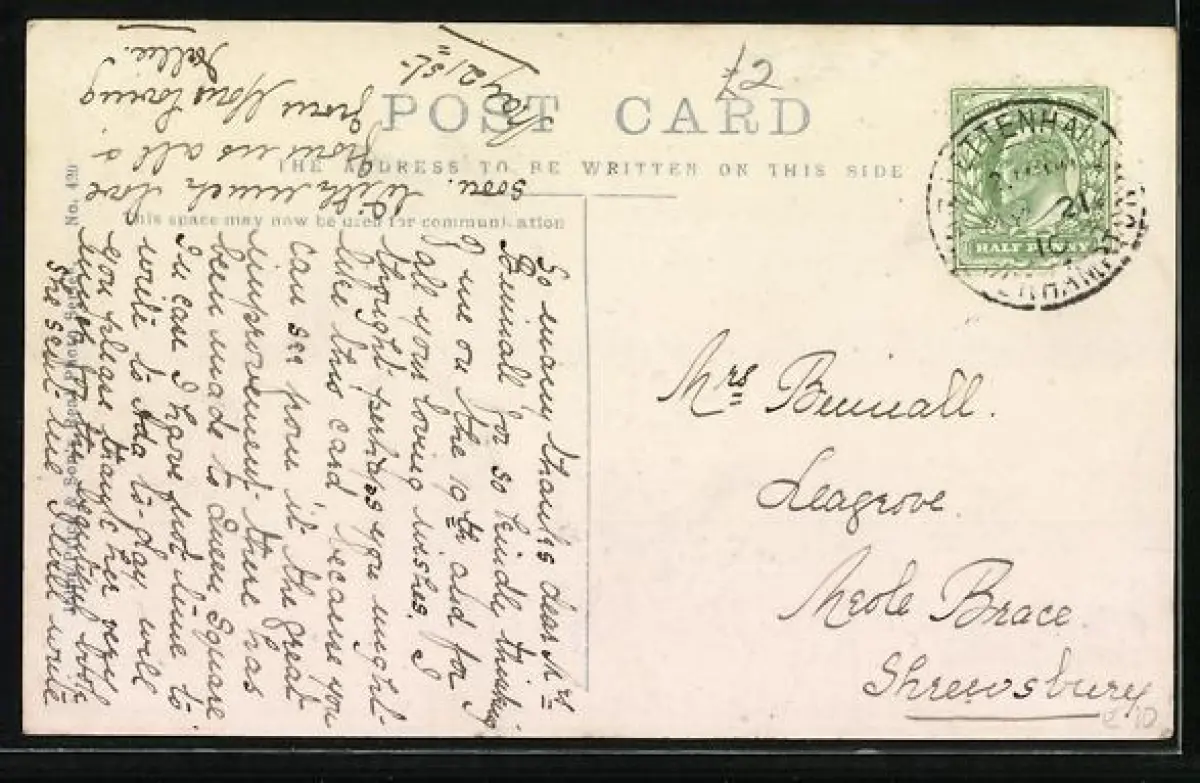 £2
POST CARD
THE ADDRESS TO BE WRITTEN ON THIS SIDE
This space may now be used for communication
No. 420
TETTENHALL
21
HALF PENNY
Mrs Bennall.
Seagrove.
Meole Brace.
Shrewsbury
May 21st
So many thanks dear Mrs
Bennall for so kindly thinking
of me on the 19th and for
all your loving wishes. I
thought perhaps you might
like this card, because you
can see from it the great
improvement there has
been made to Queen Square
I have not time to
write to Ada to-day, will
you please thank her very
much for the book
she sent me I will write
soon. With much love
from us all &
from Your loving